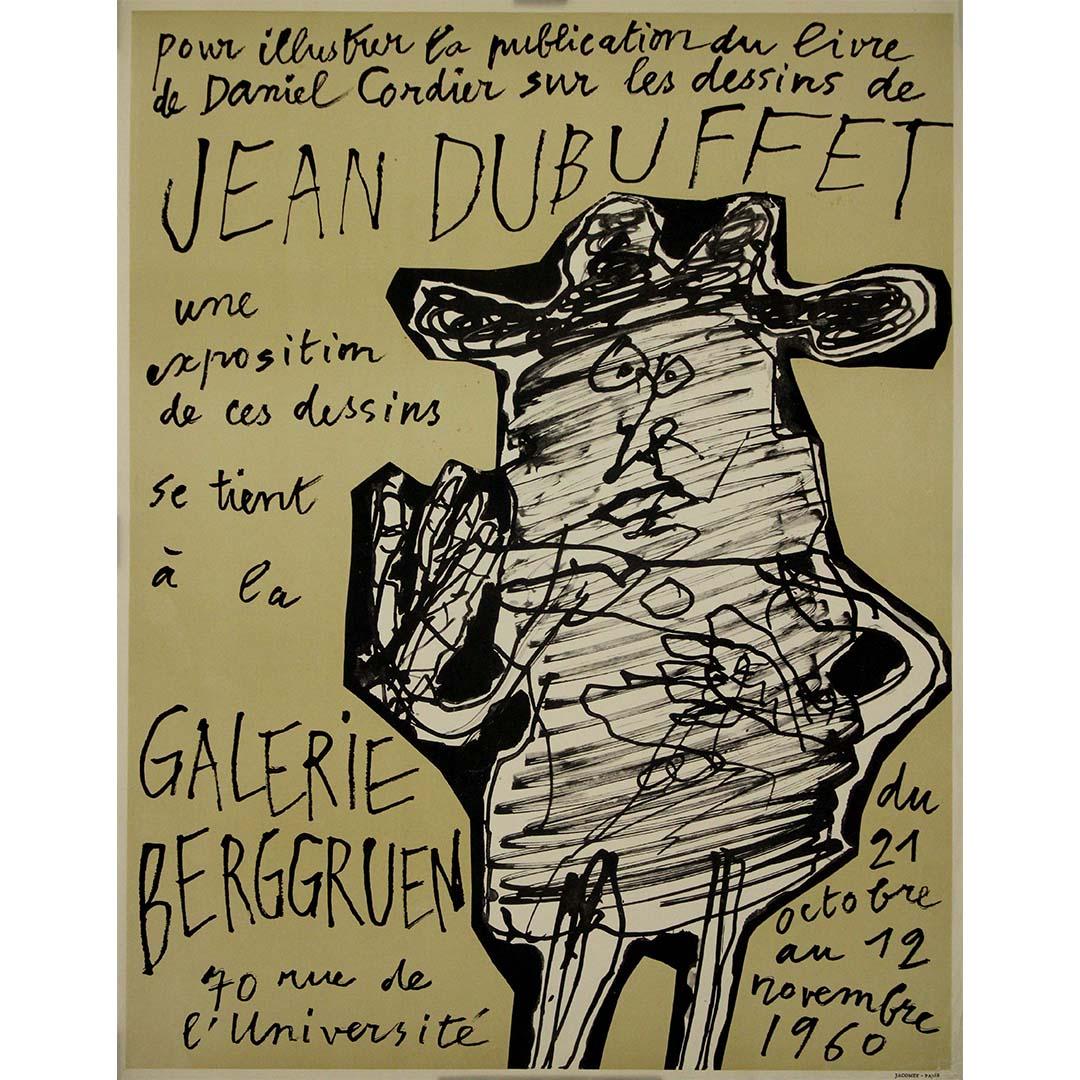 pour illustrer la publication du livre
de Daniel Cordier sur les dessins de
JEAN DUBUFFET
une
exposition
de ces dessins
se tient
à la
GALERIE
BERGGRUEN
70 rue de
l'Université
du
21
octobre
au 12
novembre
1960
JACOMET - PARIS